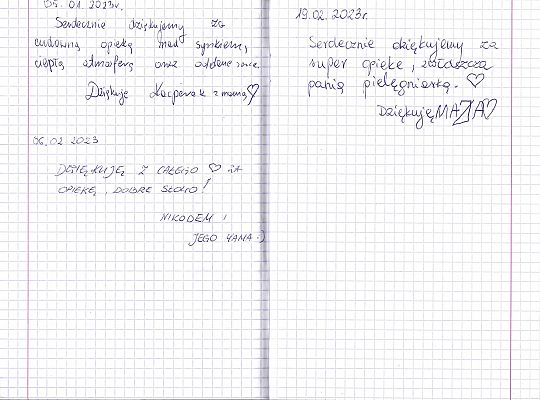 05.01.2023r.
Serdecznie dziękujemy za
cudowną opiekę nad synkiem,
ciepłą atmosferę oraz oddane serce.
Dziękuje Kacperek z mamą ♡
06.02.2023
DZIĘKUJĘ Z CAŁEGO ♡ ZA
OPIEKĘ, DOBRE SŁOWO!
NIKODEM I
JEGO MAMA :)
19.02.2023r.
Serdecznie dziękujemy za
super opiekę, zwłaszcza
panią pielęgniarką. ♡
Dziękuję MAJA ♡